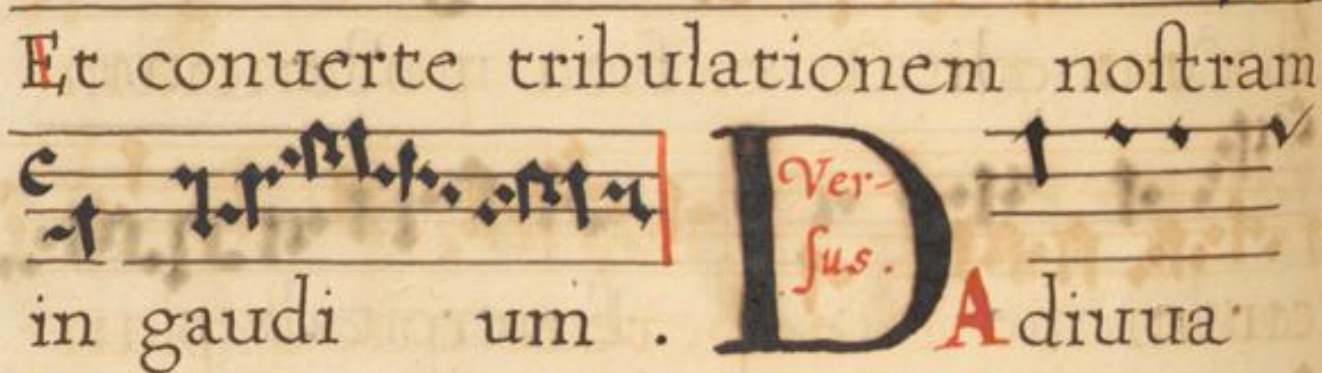 Et conuerte tribulationem noſtram
in gaudi um . D Ver-
ſus. Adiuua